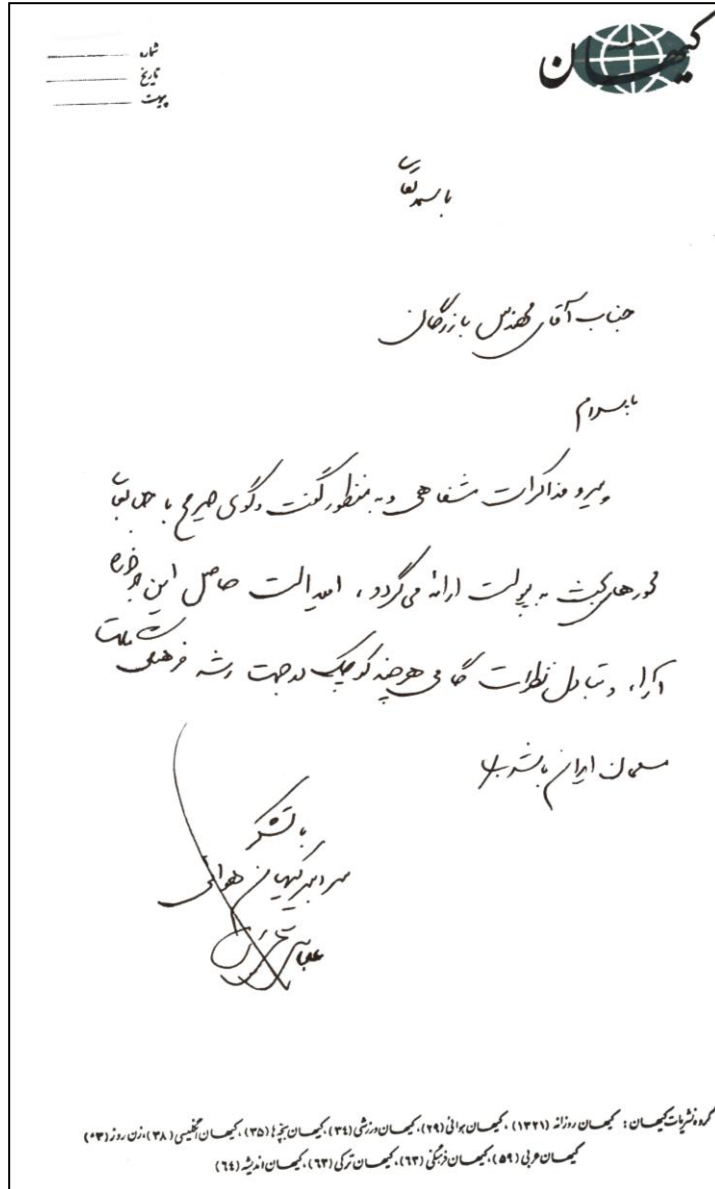 کیهان
شماره
تاریخ
پیوست
باسمه تعالی
جناب آقای مهندس بازرگان
با سلام
پیرو مذاکرات شفاهی و به منظور گفت و گوی صریح با جنابعالی
محورهای بحث به پیوست ارائه می‌گردد، امید است حاصل این
آراء و تبادل نظرات گامی هر چند کوچک در جهت رشد فرهنگی ملت
مسلمان ایران باشد
با تشکر
سردبیر کیهان هوائی
گروه نشریات کیهان: کیهان روزانه (۱۳۲۱)، کیهان هوائی (۲۹)، کیهان ورزشی (۳۴)، کیهان بچه‌ها (۳۵)، کیهان انگلیسی (۳۸)، زن روز (۴۳)
کیهان عربی (۵۹)، کیهان فرهنگی (۶۳)، کیهان ترکی (۶۳)، کیهان اندیشه (۶۴)